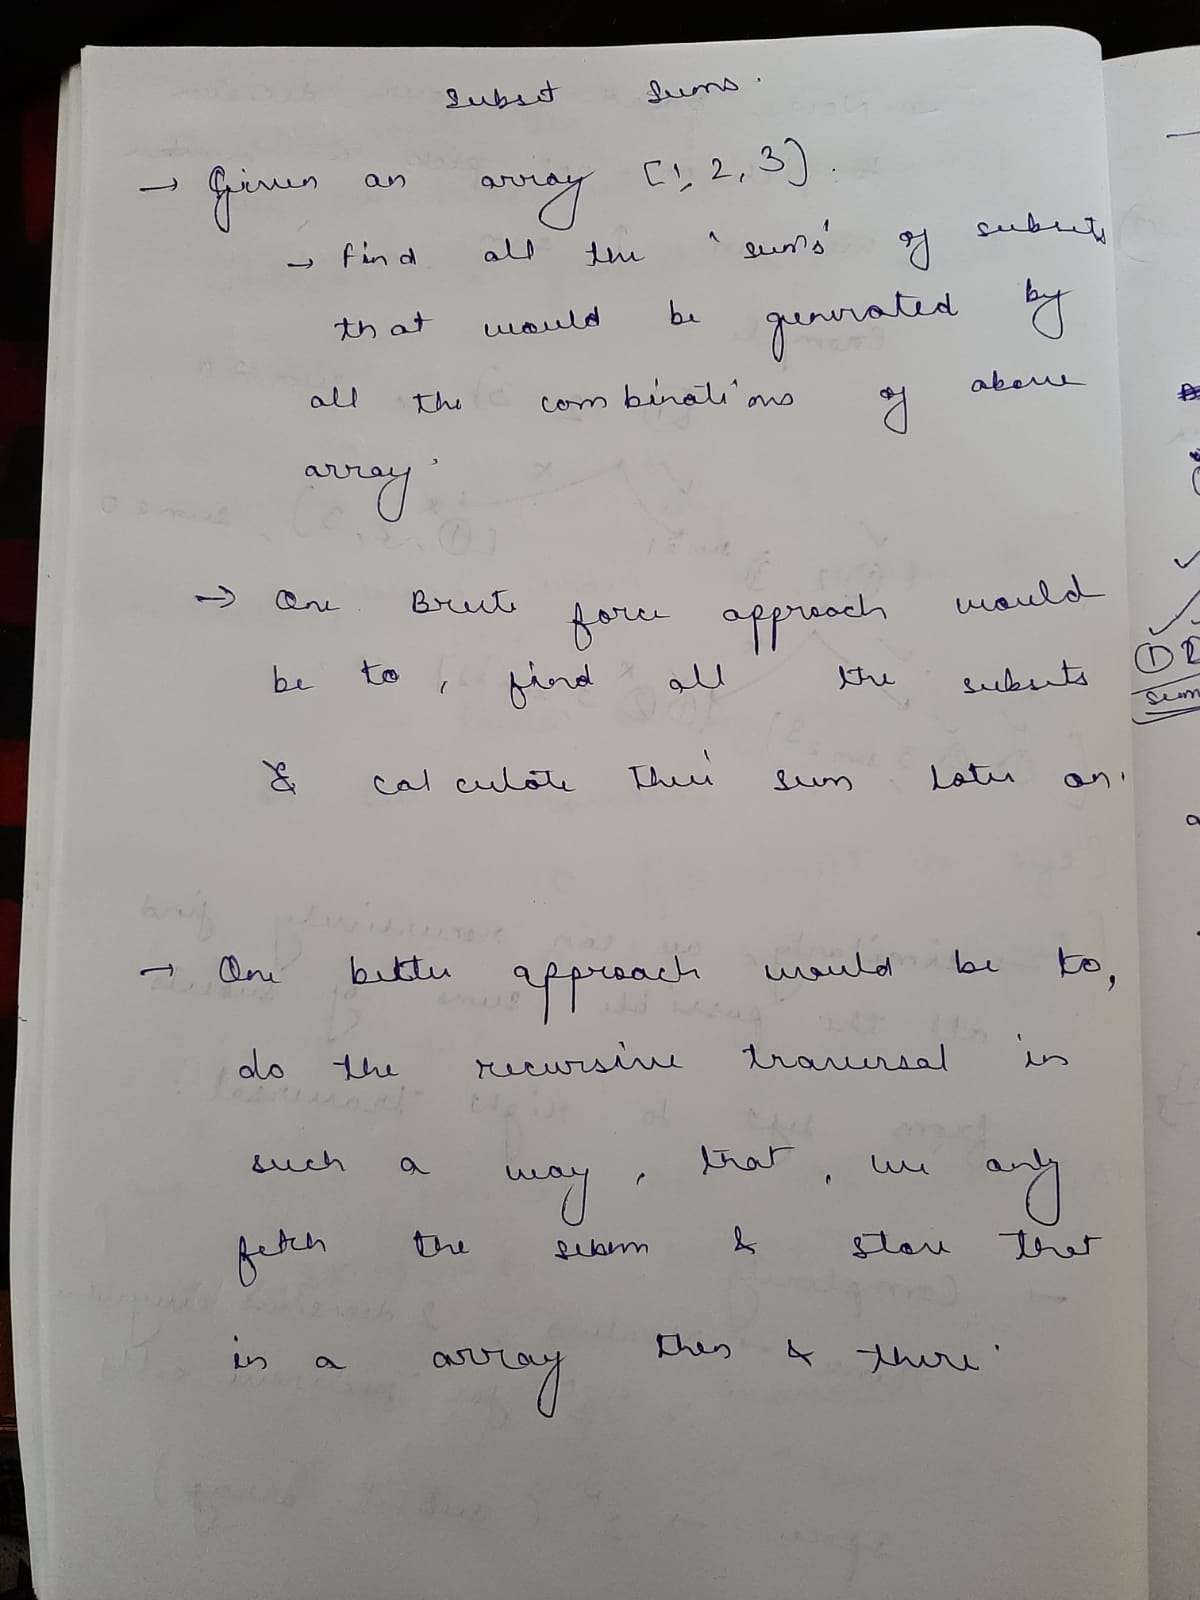 Subset Sums.
→ Given an array [1, 2, 3].
→ find all the 'sums' of subsets
that would be generated by
all the combinations of above
array.
→ One Brute force approach would
be to, find all the subsets
& calculate their sum later on.
→ One better approach would be to,
do the recursive traversal in
such a way, that, we only
fetch the sum & store that
in a array then & there.
① 2
sum